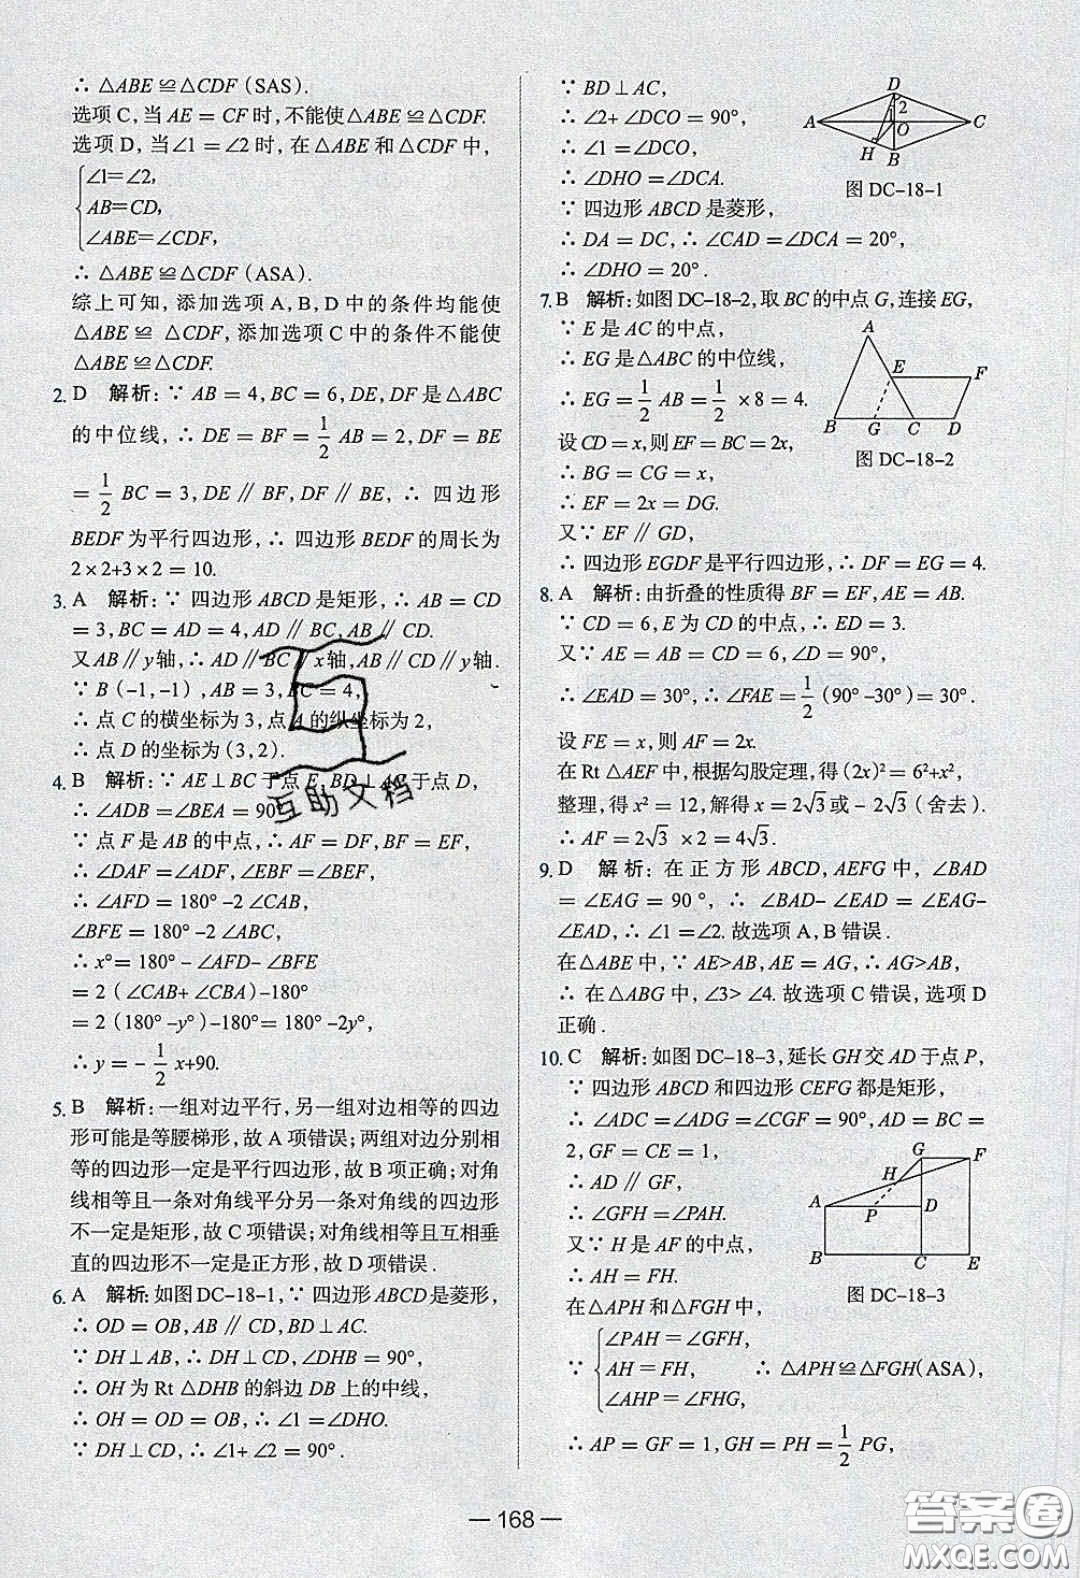 ∴ △ABE ≌ △CDF (SAS).
选项 C,当 AE = CF 时,不能使△ABE ≌△CDF.
选项 D,当∠1 = ∠2 时,在△ABE 和△CDF 中,
∠1= ∠2,
AB= CD,
∠ABE= ∠CDF,
∴ △ABE ≌ △CDF (ASA).
综上可知,添加选项 A,B,D 中的条件均能使
△ABE ≌ △CDF,添加选项 C 中的条件不能使
△ABE ≌ △CDF.
2. D 解析:∵ AB = 4,BC = 6,DE,DF 是△ABC
的中位线,∴ DE = BF = 1/2 AB = 2,DF = BE
= 1/2 BC = 3,DE ∥ BF,DF ∥ BE,∴ 四边形
BEDF 为平行四边形,∴ 四边形 BEDF 的周长为
2 × 2+3 × 2 = 10.
3. A 解析:∵ 四边形 ABCD 是矩形,∴ AB = CD
= 3,BC = AD = 4,AD ∥ BC,AB ∥ CD.
又AB ∥ y轴,∴ AD ∥ BC ∥ x轴,AB ∥ CD ∥ y轴.
∵ B (-1,-1),AB = 3,BC = 4,
∴ 点 C 的横坐标为 3,点 A 的纵坐标为 2,
∴ 点 D 的坐标为 (3,2).
4. B 解析:∵ AE⊥BC 于点 E,BD⊥AC 于点 D,
∴ ∠ADB = ∠BEA = 90°
∵ 点 F 是 AB 的中点,∴ AF = DF,BF = EF,
∴ ∠DAF = ∠ADF,∠EBF = ∠BEF,
∴ ∠AFD = 180° -2 ∠CAB,
∠BFE = 180° -2 ∠ABC,
∴ x°= 180° - ∠AFD- ∠BFE
= 2 (∠CAB+ ∠CBA) -180°
= 2 (180° -y°) -180°= 180° -2y°,
∴ y = - 1/2 x+90.
5. B 解析:一组对边平行,另一组对边相等的四边
形可能是等腰梯形,故 A 项错误;两组对边分别相
等的四边形一定是平行四边形,故 B 项正确;对角
线相等且一条对角线平分另一条对角线的四边形
不一定是矩形,故 C 项错误;对角线相等且互相垂
直的四边形不一定是正方形,故 D 项错误 .
6. A 解析:如图 DC-18-1,∵ 四边形 ABCD 是菱形,
∴ OD = OB,AB ∥ CD,BD⊥AC.
∵ DH⊥AB,∴ DH⊥CD,∠DHB = 90°,
∴ OH 为 Rt △DHB 的斜边 DB 上的中线,
∴ OH = OD = OB,∴ ∠1 = ∠DHO.
∵ DH⊥CD,∴ ∠1+ ∠2 = 90° .
∵ BD⊥AC,
∴ ∠2+ ∠DCO = 90°,
∴ ∠1 = ∠DCO,
∴ ∠DHO = ∠DCA.
∵ 四边形 ABCD 是菱形,
∴ DA = DC,∴ ∠CAD = ∠DCA = 20°,
∴ ∠DHO = 20° .
D
2
A
O
C
H
B
图 DC-18-1
7. B 解析:如图 DC-18-2,取 BC 的中点 G,连接 EG,
∵ E 是 AC 的中点,
∴ EG 是△ABC 的中位线,
∴ EG = 1/2 AB = 1/2 × 8 = 4.
设 CD = x,则 EF = BC = 2x,
∴ BG = CG = x,
∴ EF = 2x = DG.
又∵ EF ∥ GD,
∴ 四边形 EGDF 是平行四边形,∴ DF = EG = 4.
A
E
F
B
G
C
D
图 DC-18-2
8. A 解析:由折叠的性质得 BF = EF,AE = AB.
∵ CD = 6,E 为 CD 的中点,∴ ED = 3.
又∵ AE = AB = CD = 6,∠D = 90°,
∴ ∠EAD = 30°,∴ ∠FAE = 1/2 (90° -30°) = 30° .
设 FE = x,则 AF = 2x.
在 Rt △AEF 中,根据勾股定理,得 (2x)² = 6²+x²,
整理,得 x² = 12,解得 x = 2√3 或 - 2√3 (舍去).
∴ AF = 2√3 × 2 = 4√3.
9. D 解析:在正方形 ABCD,AEFG 中,∠BAD
= ∠EAG = 90 °,∴ ∠BAD- ∠EAD = ∠EAG-
∠EAD,∴ ∠1 = ∠2. 故选项 A,B 错误 .
在△ABE 中,∵ AE>AB,AE = AG,∴ AG>AB,
∴ 在△ABG 中,∠3> ∠4. 故选项 C 错误,选项 D
正确 .
10. C 解析:如图 DC-18-3,延长 GH 交 AD 于点 P,
∵ 四边形 ABCD 和四边形 CEFG 都是矩形,
∴ ∠ADC = ∠ADG = ∠CGF = 90°,AD = BC =
2,GF = CE = 1,
∴ AD ∥ GF,
∴ ∠GFH = ∠PAH.
又∵ H 是 AF 的中点,
∴ AH = FH.
在△APH 和△FGH 中,
∠PAH = ∠GFH,
∵ AH = FH, ∴ △APH≌△FGH(ASA),
∠AHP = ∠FHG,
∴ AP = GF = 1,GH = PH = 1/2 PG,
G
F
H
A
P
D
B
C
E
图 DC-18-3
互助文档
— 168 —
答案圈
MXQE.COM